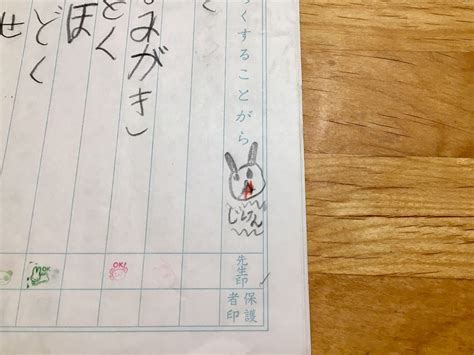 くすることがら
じけん
みがき
とく
ほ
どく
せ
先生印
保護者印
OK!
OK